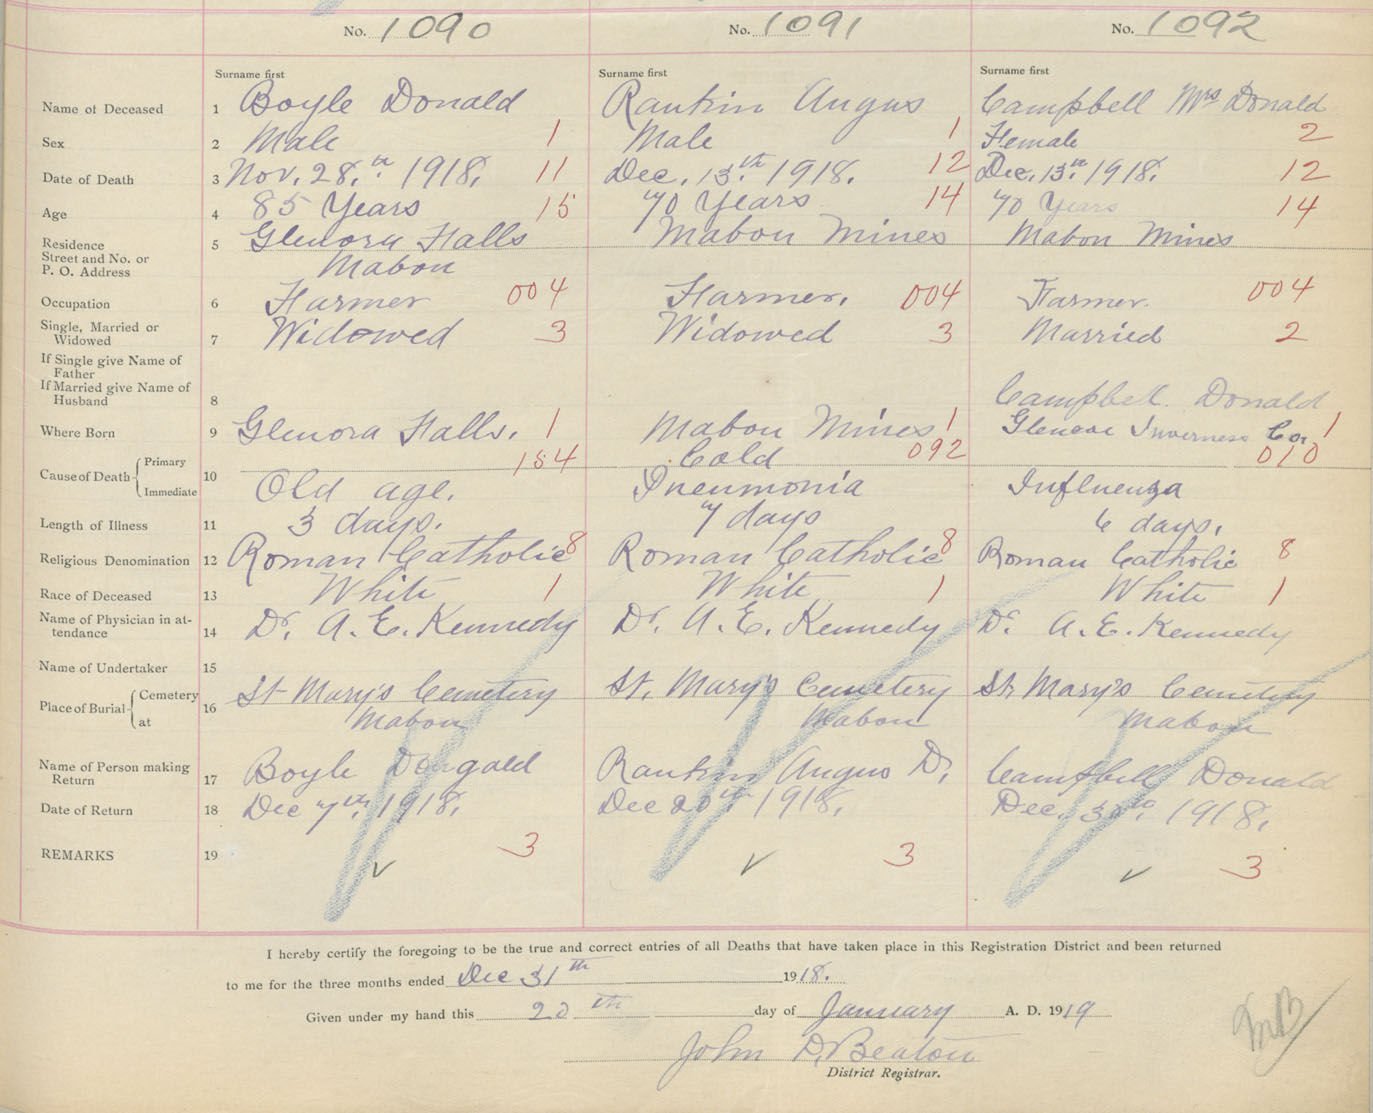 No. 1090 No. 1091 No. 1092
Surname first Surname first Surname first
Name of Deceased 1 Boyle Donald Rankin Angus Campbell Mrs Donald
Sex 2 Male 1 Male 1 Female 2
Date of Death 3 Nov. 28.th 1918. 11 Dec. 13.th 1918. 12 Dec. 13.th 1918. 12
Age 4 85 Years 15 70 Years 14 70 Years 14
Residence 5 Glenora Falls Mabou Mines Mabou Mines
Street and No. or
P. O. Address Mabou
Occupation 6 Farmer 004 Farmer. 004 Farmer. 004
Single, Married or
Widowed 7 Widowed 3 Widowed 3 Married 2
If Single give Name of
Father
If Married give Name of
Husband 8 Campbell Donald
Where Born 9 Glenora Falls. 1 Mabou Mines 1 Glencoe Inverness Co. 1
Cause of Death Primary 154 Cold 092 010
Immediate 10 Old age. Pneumonia Influenza
Length of Illness 11 3 days. 7 days 6 days.
Religious Denomination 12 Roman Catholic 8 Roman Catholic 8 Roman Catholic 8
Race of Deceased 13 White 1 White 1 White 1
Name of Physician in at-
tendance 14 Dr. A. E. Kennedy Dr. A. E. Kennedy Dr. A. E. Kennedy
Name of Undertaker 15
Place of Burial Cemetery 16 St Mary's Cemetery St. Mary's Cemetery St Mary's Cemetery
at Mabou Mabou Mabou
Name of Person making
Return 17 Boyle Dougald Rankin Angus D. Campbell Donald
Date of Return 18 Dec 7th. 1918. Dec 20th. 1918. Dec. 30th. 1918.
REMARKS 19 3 3 3
I hereby certify the foregoing to be the true and correct entries of all Deaths that have taken place in this Registration District and been returned
to me for the three months ended Dec 31th 1918.
Given under my hand this 20th day of January A. D. 1919
John D. Beaton
District Registrar.